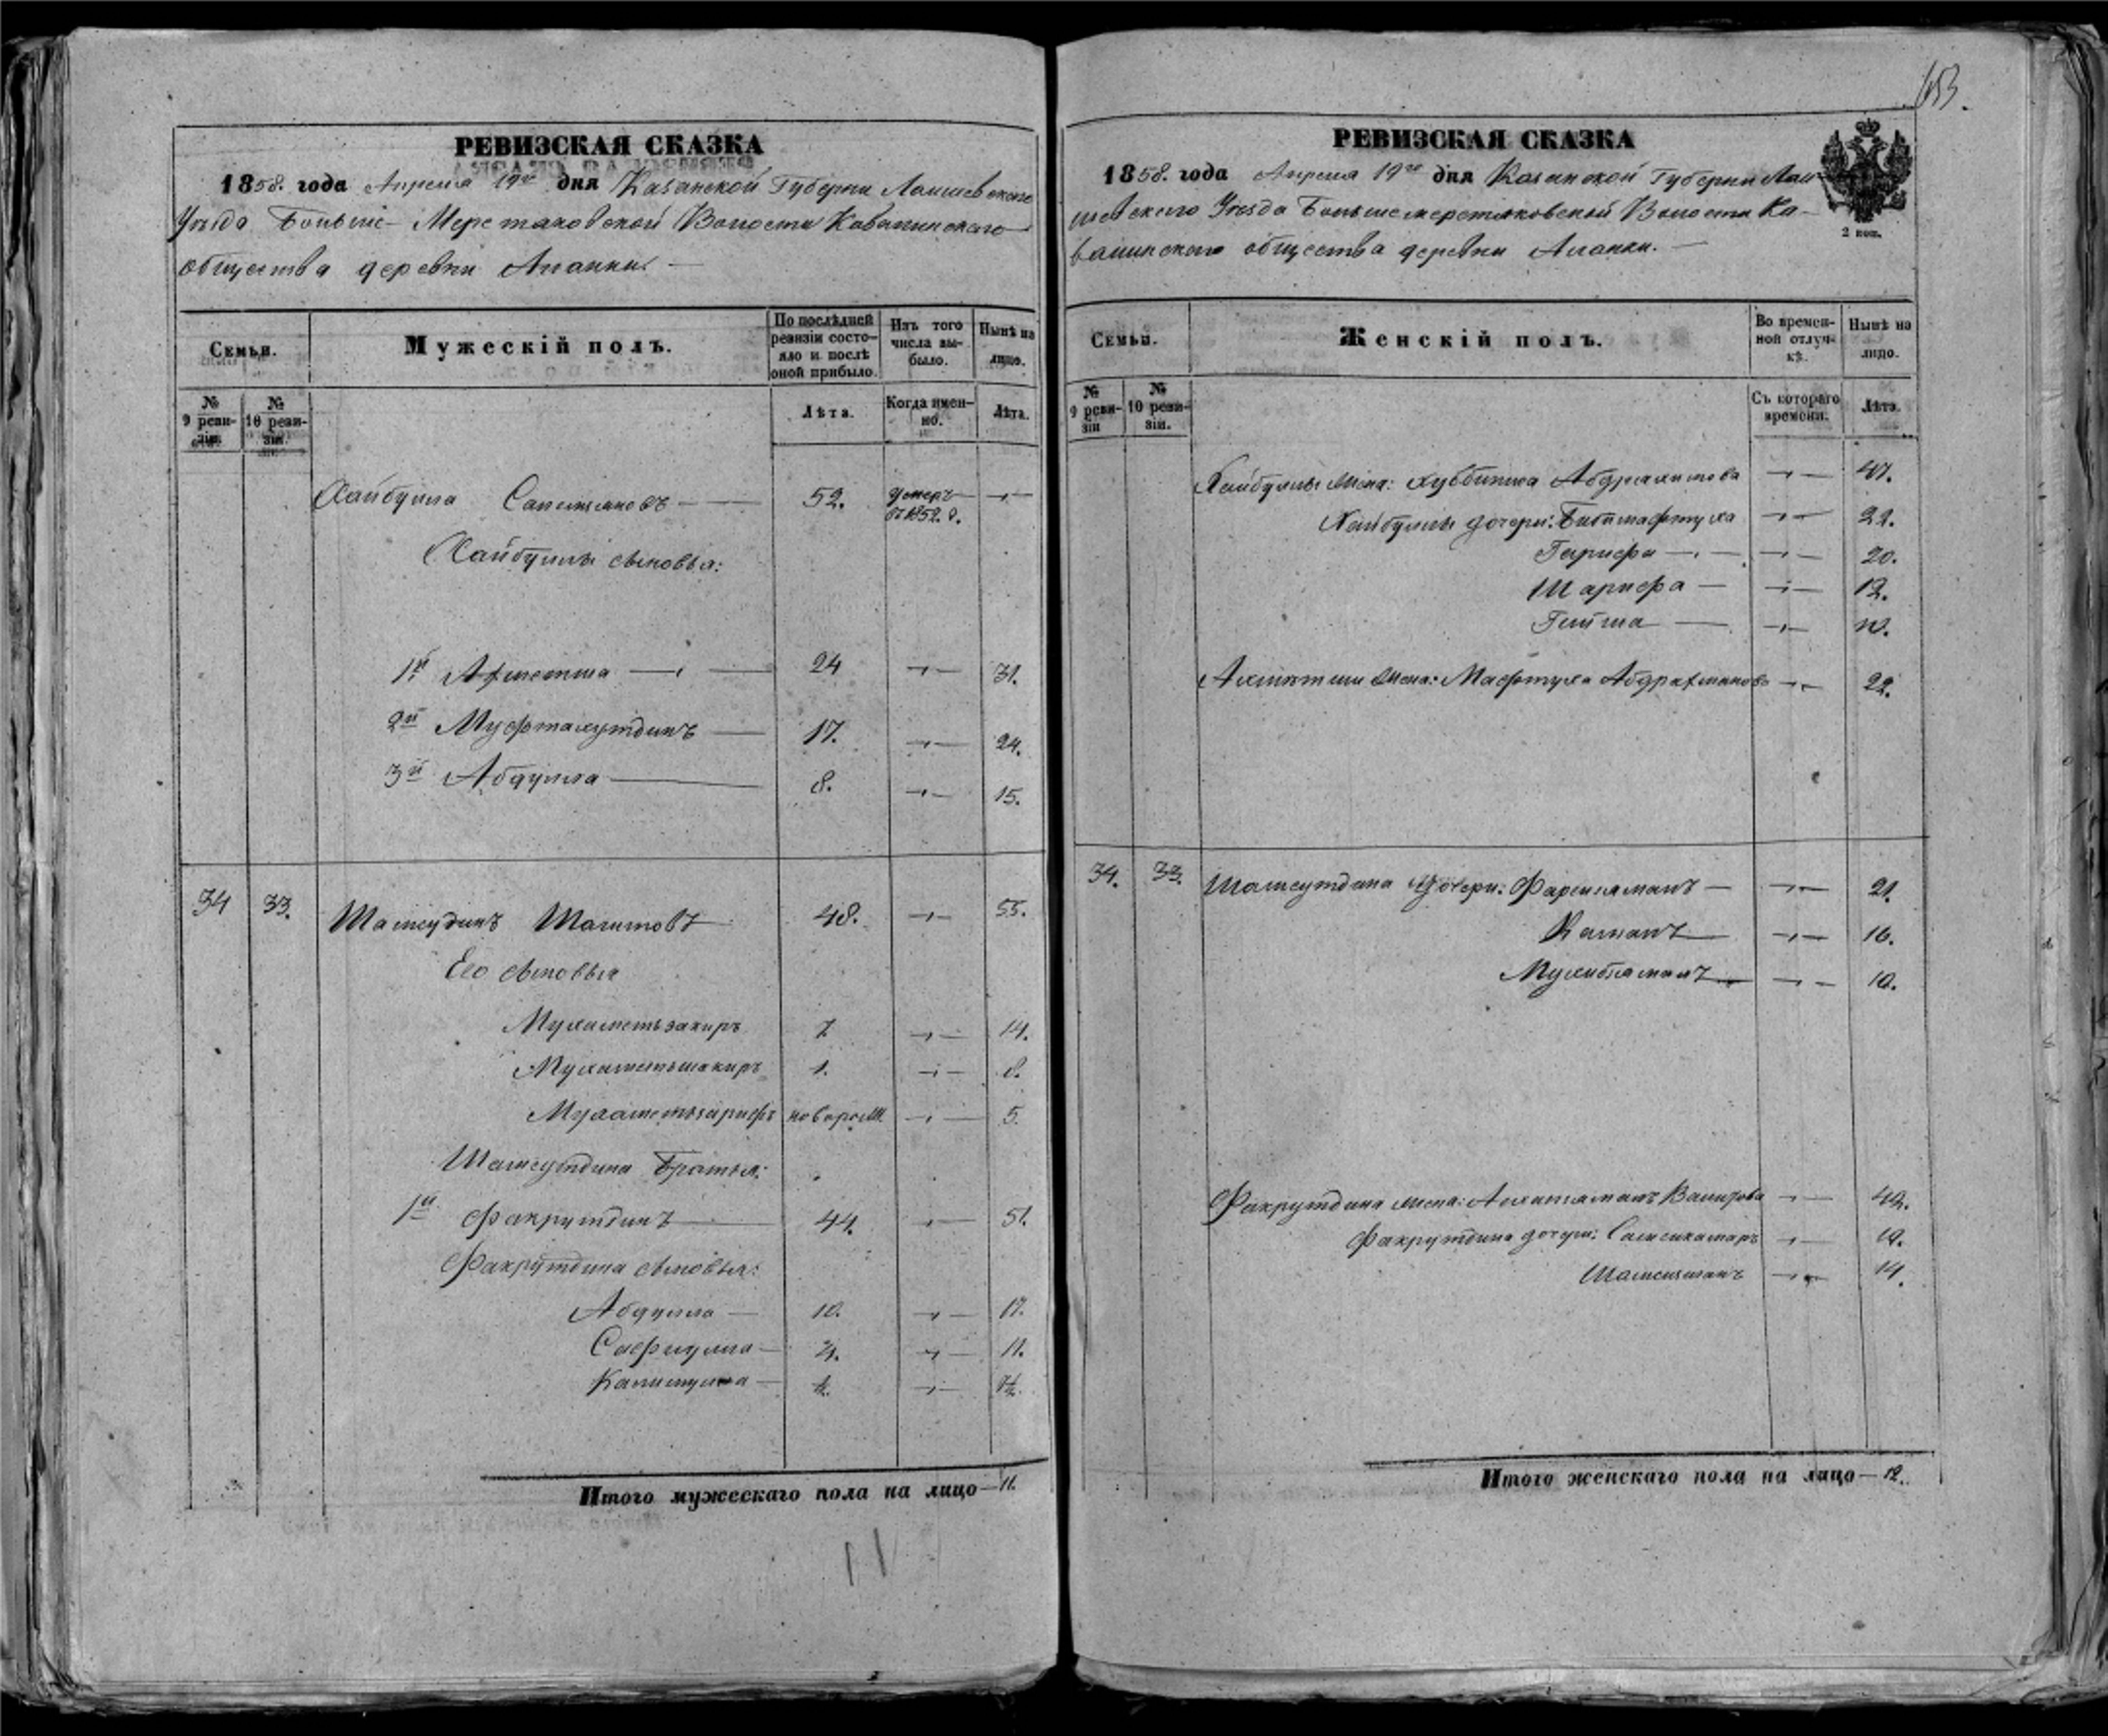 653.
РЕВИЗСКАЯ СКАЗКА
1858. года Апреля 19го дня Казанской Губернии Лаишевскаго
Уѣзда Больше-Меретяковской Волости Кавалинскаго
общества деревни Аланки.
Семьи.
Мужескій полъ.
По послѣдней ревизіи состояло и послѣ оной прибыло.
Изъ того числа выбыло.
Нынѣ на лицо.
№ 9 ревизіи.
№ 10 ревизіи.
Лѣта.
Когда именно.
Лѣта.
Хайбулла 52. умеръ въ 1852. г.
Хайбуллы сыновья:
1й Ахметша 24 31.
2й Муфтахутдинъ 17. 24.
3й Абдулла 8. 15.
34 33. Шамсудинъ 48. 55.
Его сыновья
Мухаметьзакиръ 7 14.
Мухаметьшакиръ 1. 8.
Мухаметьзарифъ новорож. 5.
Шамсутдина Братья:
1й Факрутдинъ 44. 51.
Факрутдина сыновья:
Абдулла 10. 17.
Сафиулла 4. 11.
Калимулла ½. 7½.
Итого мужескаго пола на лицо 11.
11
РЕВИЗСКАЯ СКАЗКА
1858. года Апреля 19го дня Казанской Губернии Лаи-
шевскаго Уѣзда Большемеретяковской Волости Ка-
валинскаго общества деревни Аланки.
2 коп.
Семьи.
Женскій полъ.
Во временной отлучкѣ.
Нынѣ на лицо.
№ 9 ревизіи
№ 10 ревизіи.
Съ котораго времени.
Лѣта.
Хайбуллы жена: Абдрахимова 47.
Хайбуллы дочери: Бибимафтуха 22.
Гарифа 20.
Шарифа 12.
Гайша
Ахметши жена: Мафтуха Абдрахманова 22.
34. 33. Шамсутдина дочери: 21.
Камалъ 16.
10.
Факрутдина жена: Валирова 42.
Факрутдина дочери: 19.
14.
Итого женскаго пола на лицо 12.